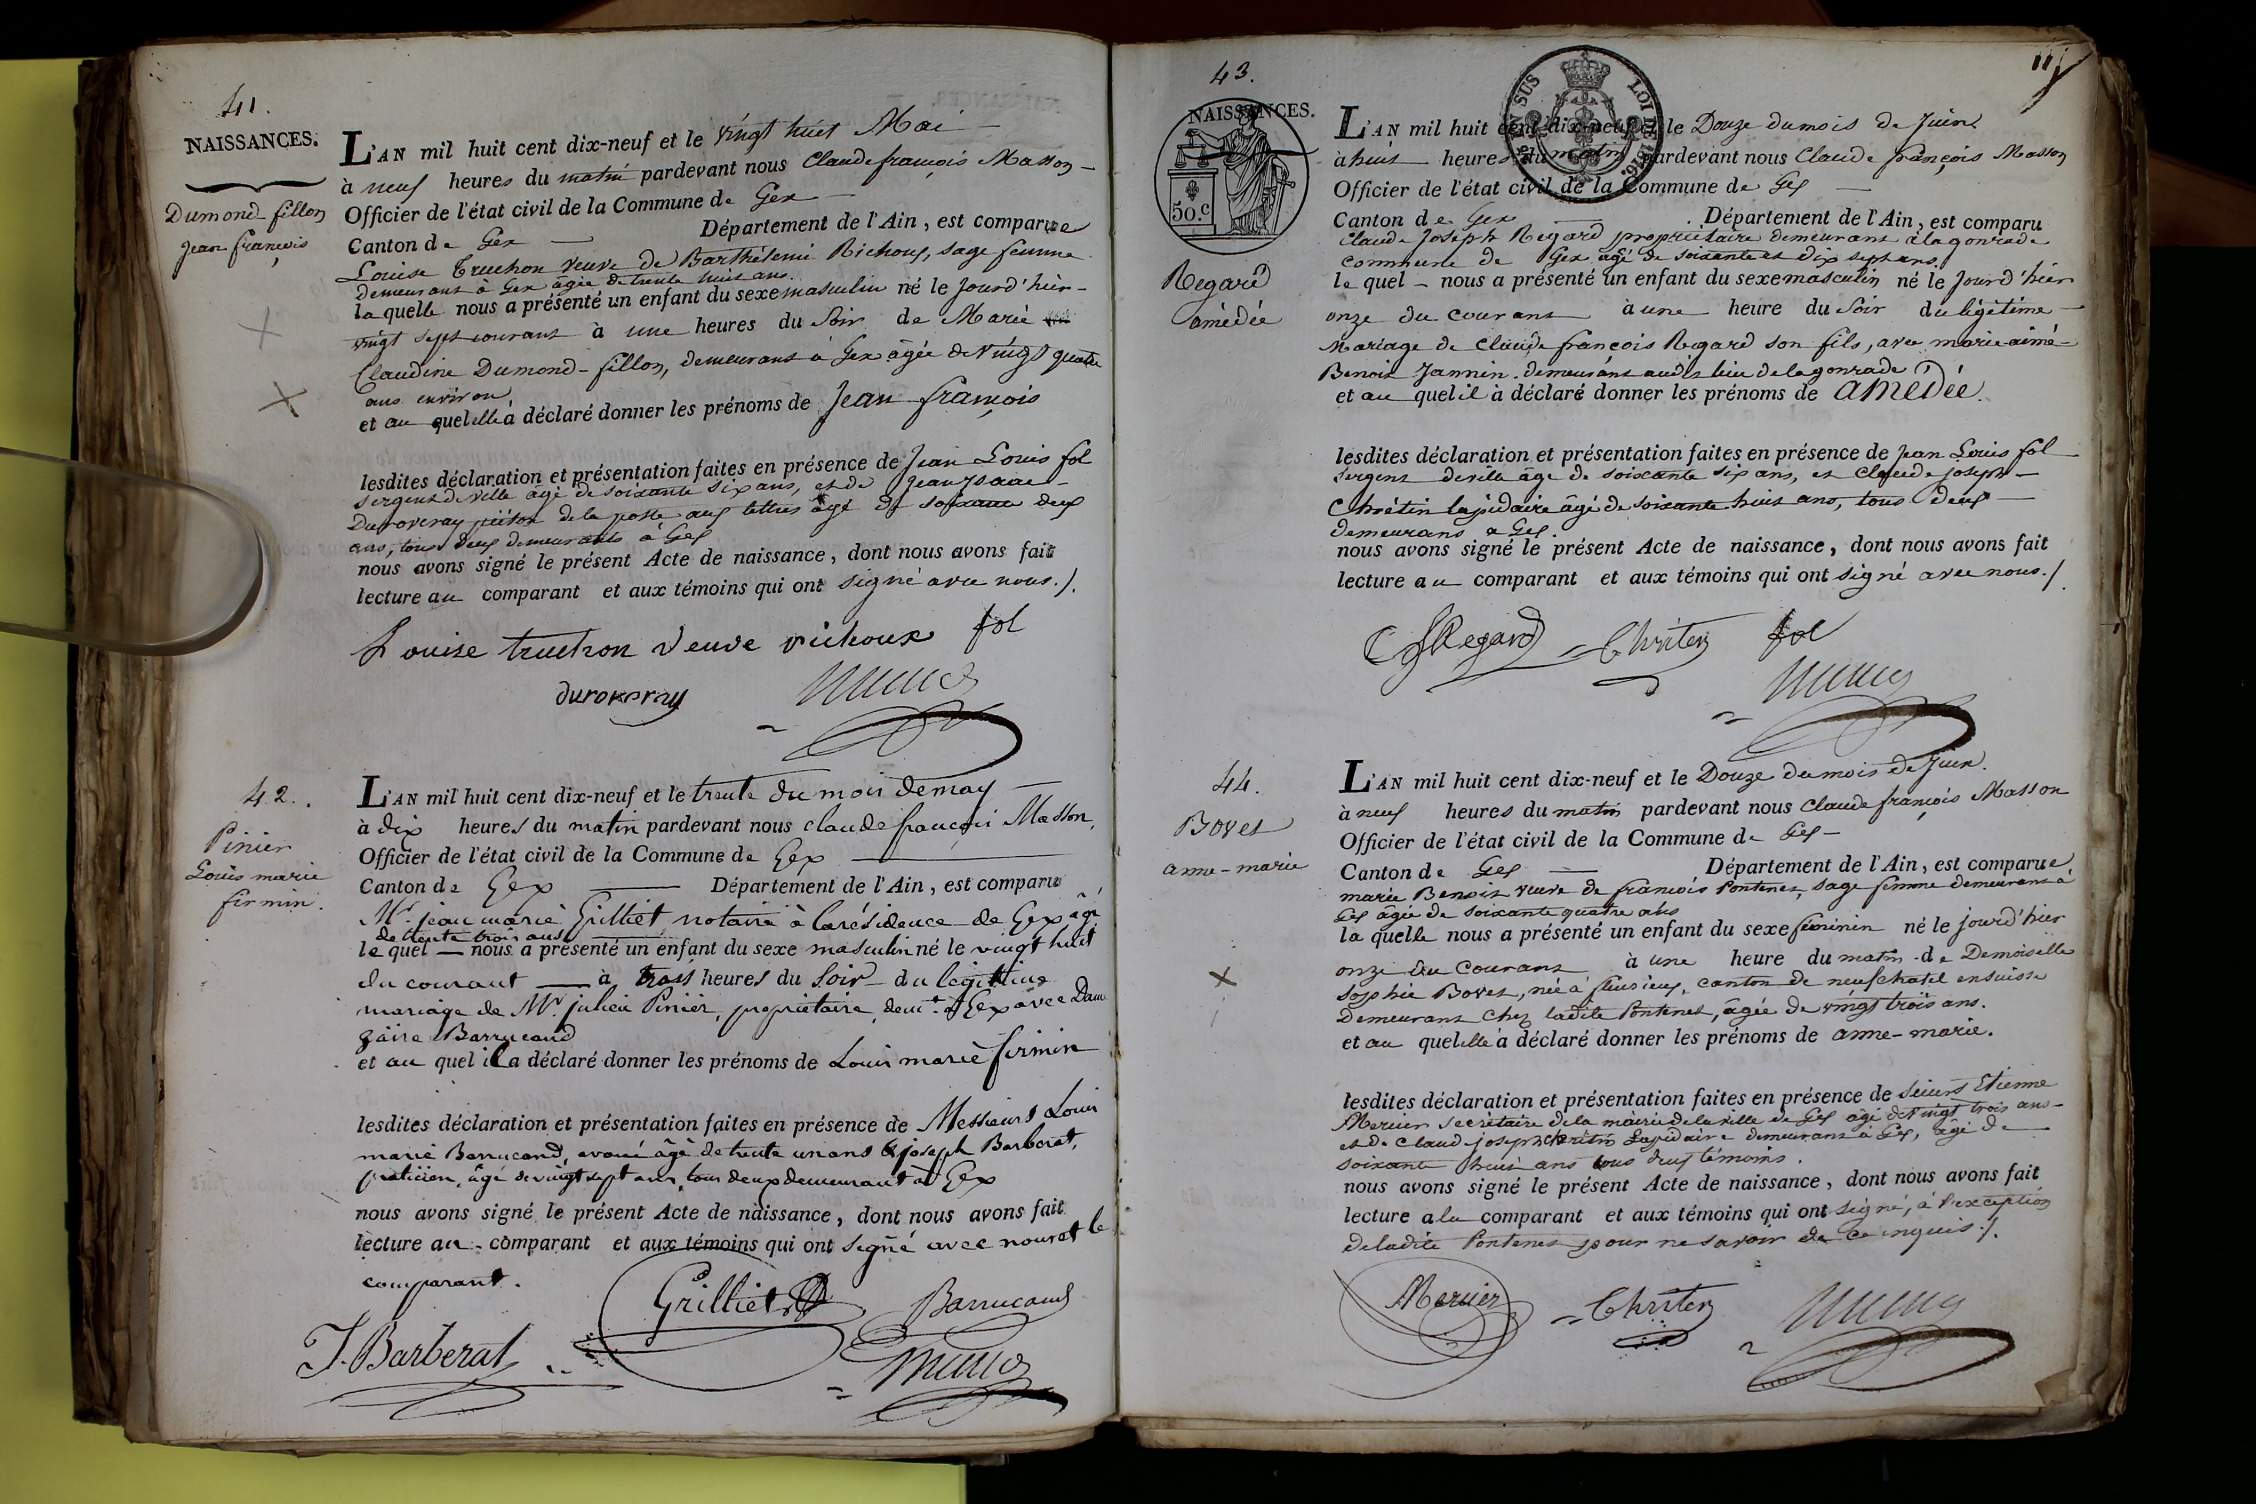 41.
NAISSANCES.
Dumond-fillon
Jean françois
L'AN mil huit cent dix-neuf et le vingt huit Mai
à neuf heures du matin pardevant nous Claude françois Masson
Officier de l'état civil de la Commune de Gex
Canton de Gex Département de l'Ain, est comparue
Louise Truchon veuve de Barthélemi Richoux, sage femme
demeurant à Gex âgée de trente huit ans.
laquelle nous a présenté un enfant du sexe masculin né le jourd'hier
vingt sept courant à une heures du Soir de Marie
Claudine Dumond-fillon, demeurant à Gex âgée de vingt quatre
ans environ
et au quel elle à déclaré donner les prénoms de Jean françois
lesdites déclaration et présentation faites en présence de Jean Louis fol
Sergent de ville âgé de soixante six ans, et de Jean Isaac
Duroveray piéton de la poste aux lettres âgé de soixante deux
ans, tous deux demeurants à Gex
nous avons signé le présent Acte de naissance, dont nous avons fait
lecture au comparant et aux témoins qui ont signé avec nous./.
Louise truchon veuve richoux fol
duroveray
42.
Pinier
Louis marie
firmin.
L'AN mil huit cent dix-neuf et le trente du mois de may
à dix heures du matin pardevant nous claude françois Masson,
Officier de l'état civil de la Commune de Gex
Canton de Gex Département de l'Ain, est comparu
Mr. jean marie Grilliet notaire à la résidence de Gex âgé
de trente trois ans
le quel nous a présenté un enfant du sexe masculin né le vingt huit
du courant à trois heures du Soir du légitime
mariage de Mr. julien Pinier, propriétaire, demt. à Gex avec Dame
zaïre Barrucand
et au quel il a déclaré donner les prénoms de Louis marie firmin
lesdites déclaration et présentation faites en présence de Messieurs Louis
marie Barrucand, avoué âgé de trente un ans & joseph Barberat,
praticien, âgé de vingt sept ans, tous deux demeurant à Gex
nous avons signé le présent Acte de naissance, dont nous avons fait
lecture au comparant et aux témoins qui ont signé avec nous et le
comparant.
Grilliet Barrucand
J. Barberat
43.
NAISSANCES.
50.c
EN SUS
LOI DE 1816.
Regard
amédée
L'AN mil huit cent dix-neuf et le Douze du mois de Juin
à huit heures du matin pardevant nous Claude françois Masson
Officier de l'état civil de la Commune de Gex
Canton de Gex Département de l'Ain, est comparu
Claude Joseph Regard propriétaire demeurant à lagonrade
commune de Gex âgé de soixante et dix sept ans
le quel nous a présenté un enfant du sexe masculin né le Jourd'hier
onze du courant à une heure du Soir du légitime
Mariage de Claude françois Regard son fils, avec marie aimé
Benoit Jannin demeurant audit lieu de lagonrade
et au quel il à déclaré donner les prénoms de amédée.
lesdites déclaration et présentation faites en présence de Jean Louis fol
Sergent de ville âgé de soixante six ans, et Claude Joseph
Chrétin lapidaire âgé de soixante huit ans, tous deux
demeurans a Gex.
nous avons signé le présent Acte de naissance, dont nous avons fait
lecture au comparant et aux témoins qui ont signé avec nous./.
Regard Chriten fol
44.
Bovet
anne-marie
L'AN mil huit cent dix-neuf et le Douze du mois de Juin.
à neuf heures du matin pardevant nous Claude françois Masson
Officier de l'état civil de la Commune de Gex
Canton de Gex Département de l'Ain, est comparue
marie Benoit veuve de françois Pontenet, sage femme demeurant à
Gex âgée de soixante quatre ans
la quelle nous a présenté un enfant du sexe féminin né le jourd'hier
onze du courant à une heure du matin de Demoiselle
Sophie Bovet, née à fleurieux, canton de neufchatel en suisse
Demeurant chez ladite Pontenet, âgée de vingt trois ans.
et au quel elle à déclaré donner les prénoms de anne-marie.
lesdites déclaration et présentation faites en présence de Sieurs Etienne
Mercier Secrétaire de la mairie de la ville de Gex âgé de vingt trois ans
et de Claude joseph chretin Lapidaire demeurant à Gex, âgé de
soixante huit ans tous deux témoins.
nous avons signé le présent Acte de naissance, dont nous avons fait
lecture a la comparant et aux témoins qui ont signé, à l'exception
de ladite Pontenet pour ne savoir de ce enquis./.
Mercier Chriten